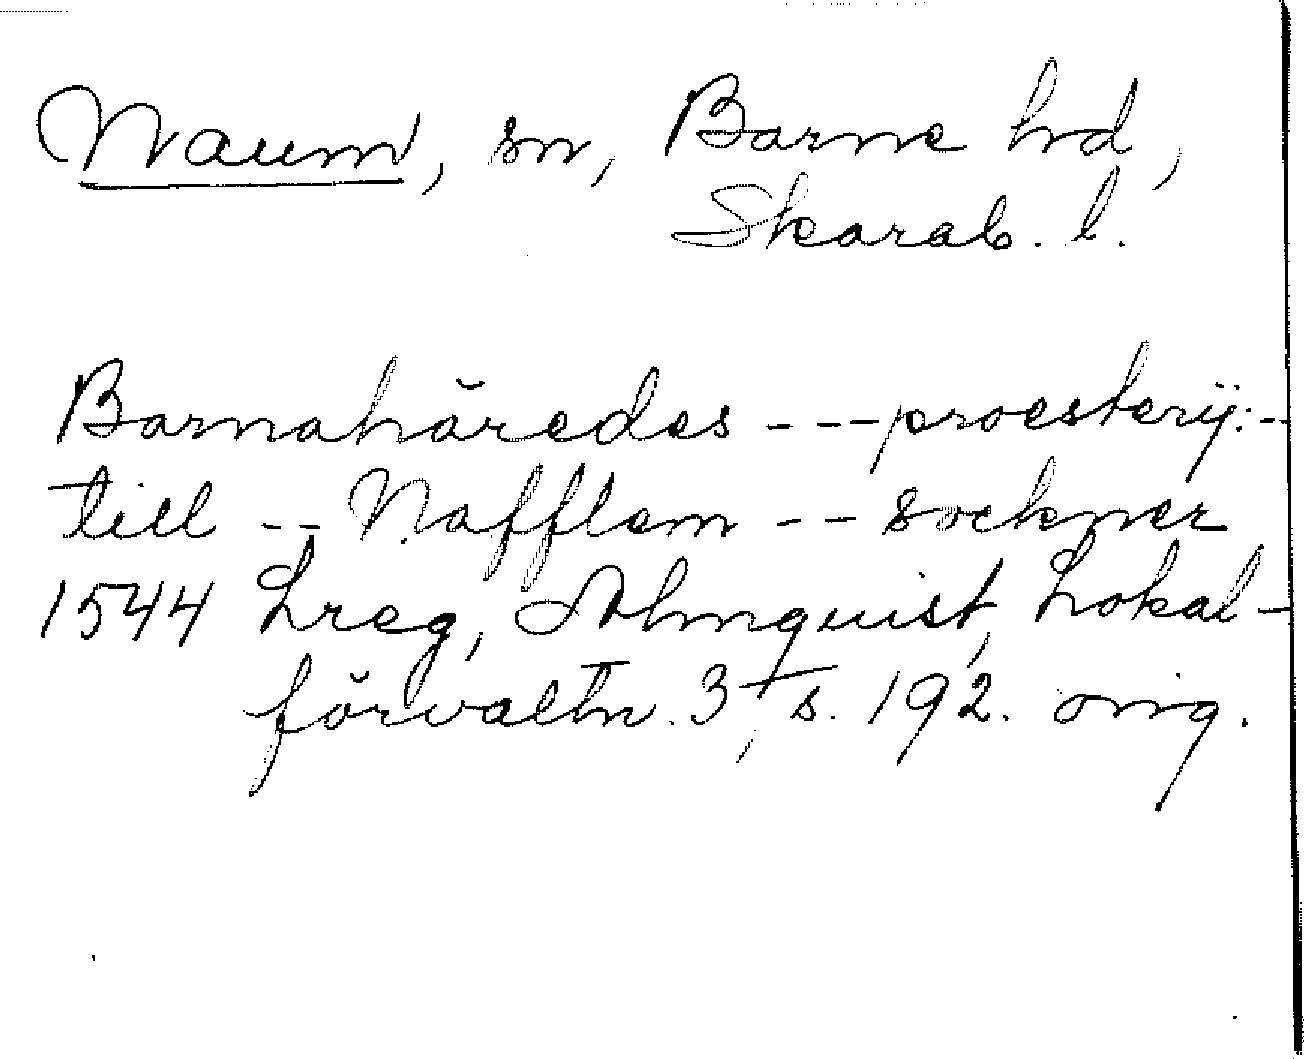 Naum, sn, Barne hd,
Skarab. l.
Barnahäredes --- proesterij: -
till -- Nafflem -- sockner
1544 Lreg, Almquist, Lokal-
förvaltn. 3, s. 192. orig.